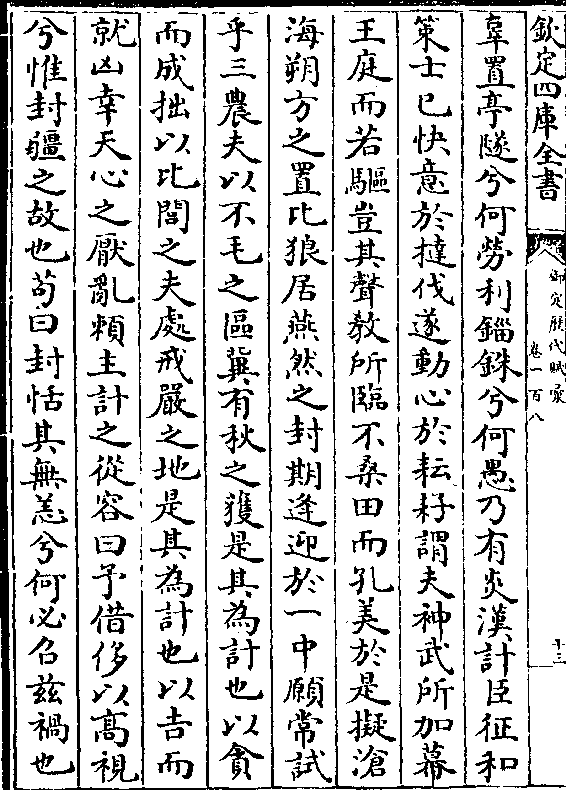 欽定四庫全書
御定歷代賦彙
卷一百八
十三
辜置亭隧兮何勞利錙銖兮何愚乃有炎漢計臣征和
策士已快意於撻伐遂動心於耘耔謂夫神武所加幕
王庭而若驅豈其聲教所臨不桑田而孔美於是擬滄
海朔方之置比狼居燕然之封期逢迎於一中願常試
乎三農夫以不毛之區冀有秋之獲是其為計也以貪
而成拙以比閭之夫處戒嚴之地是其為計也以吉而
就凶幸天心之厭亂賴主計之從容曰予借侈以高視
兮惟封疆之故也苟曰封恬其無恙兮何必召茲禍也